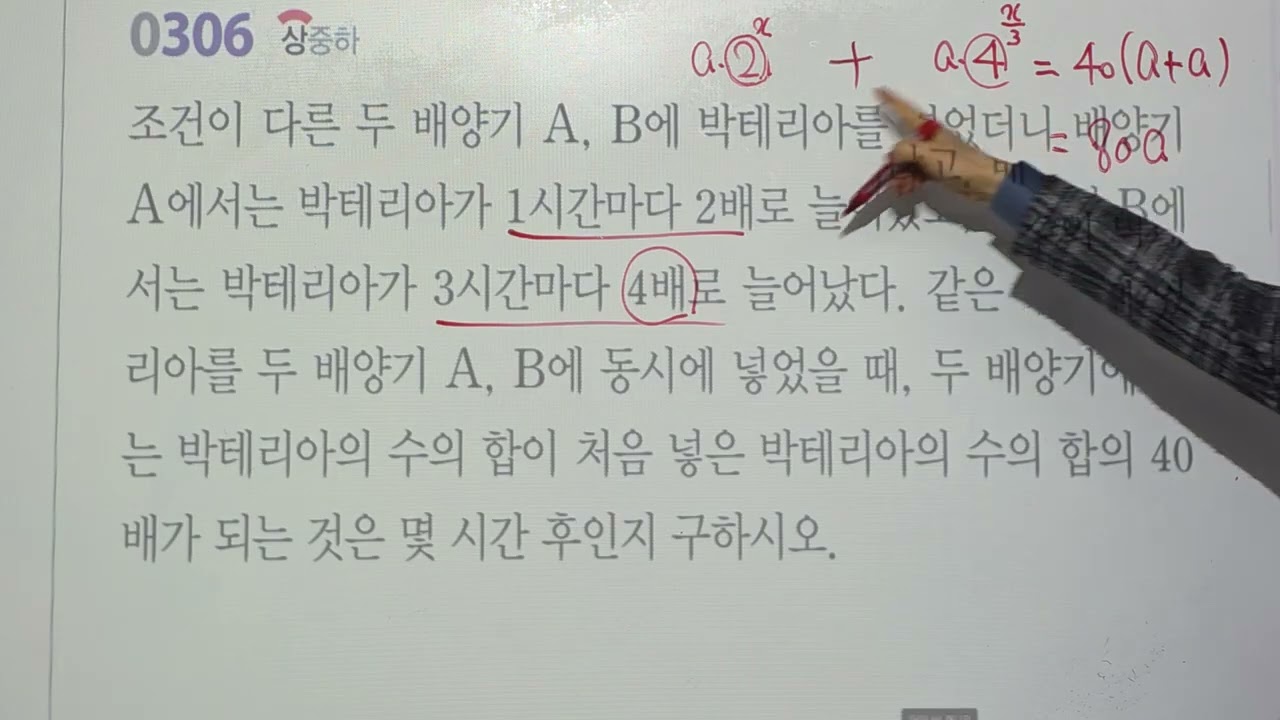 0306 상중하
a·2^x + a·4^(x/3) = 40(a+a)
= 80a
조건이 다른 두 배양기 A, B에 박테리아를 배양기
A에서는 박테리아가 1시간마다 2배로 B에
서는 박테리아가 3시간마다 4배로 늘어났다. 같은
리아를 두 배양기 A, B에 동시에 넣었을 때, 두 배양기에
는 박테리아의 수의 합이 처음 넣은 박테리아의 수의 합의 40
배가 되는 것은 몇 시간 후인지 구하시오.